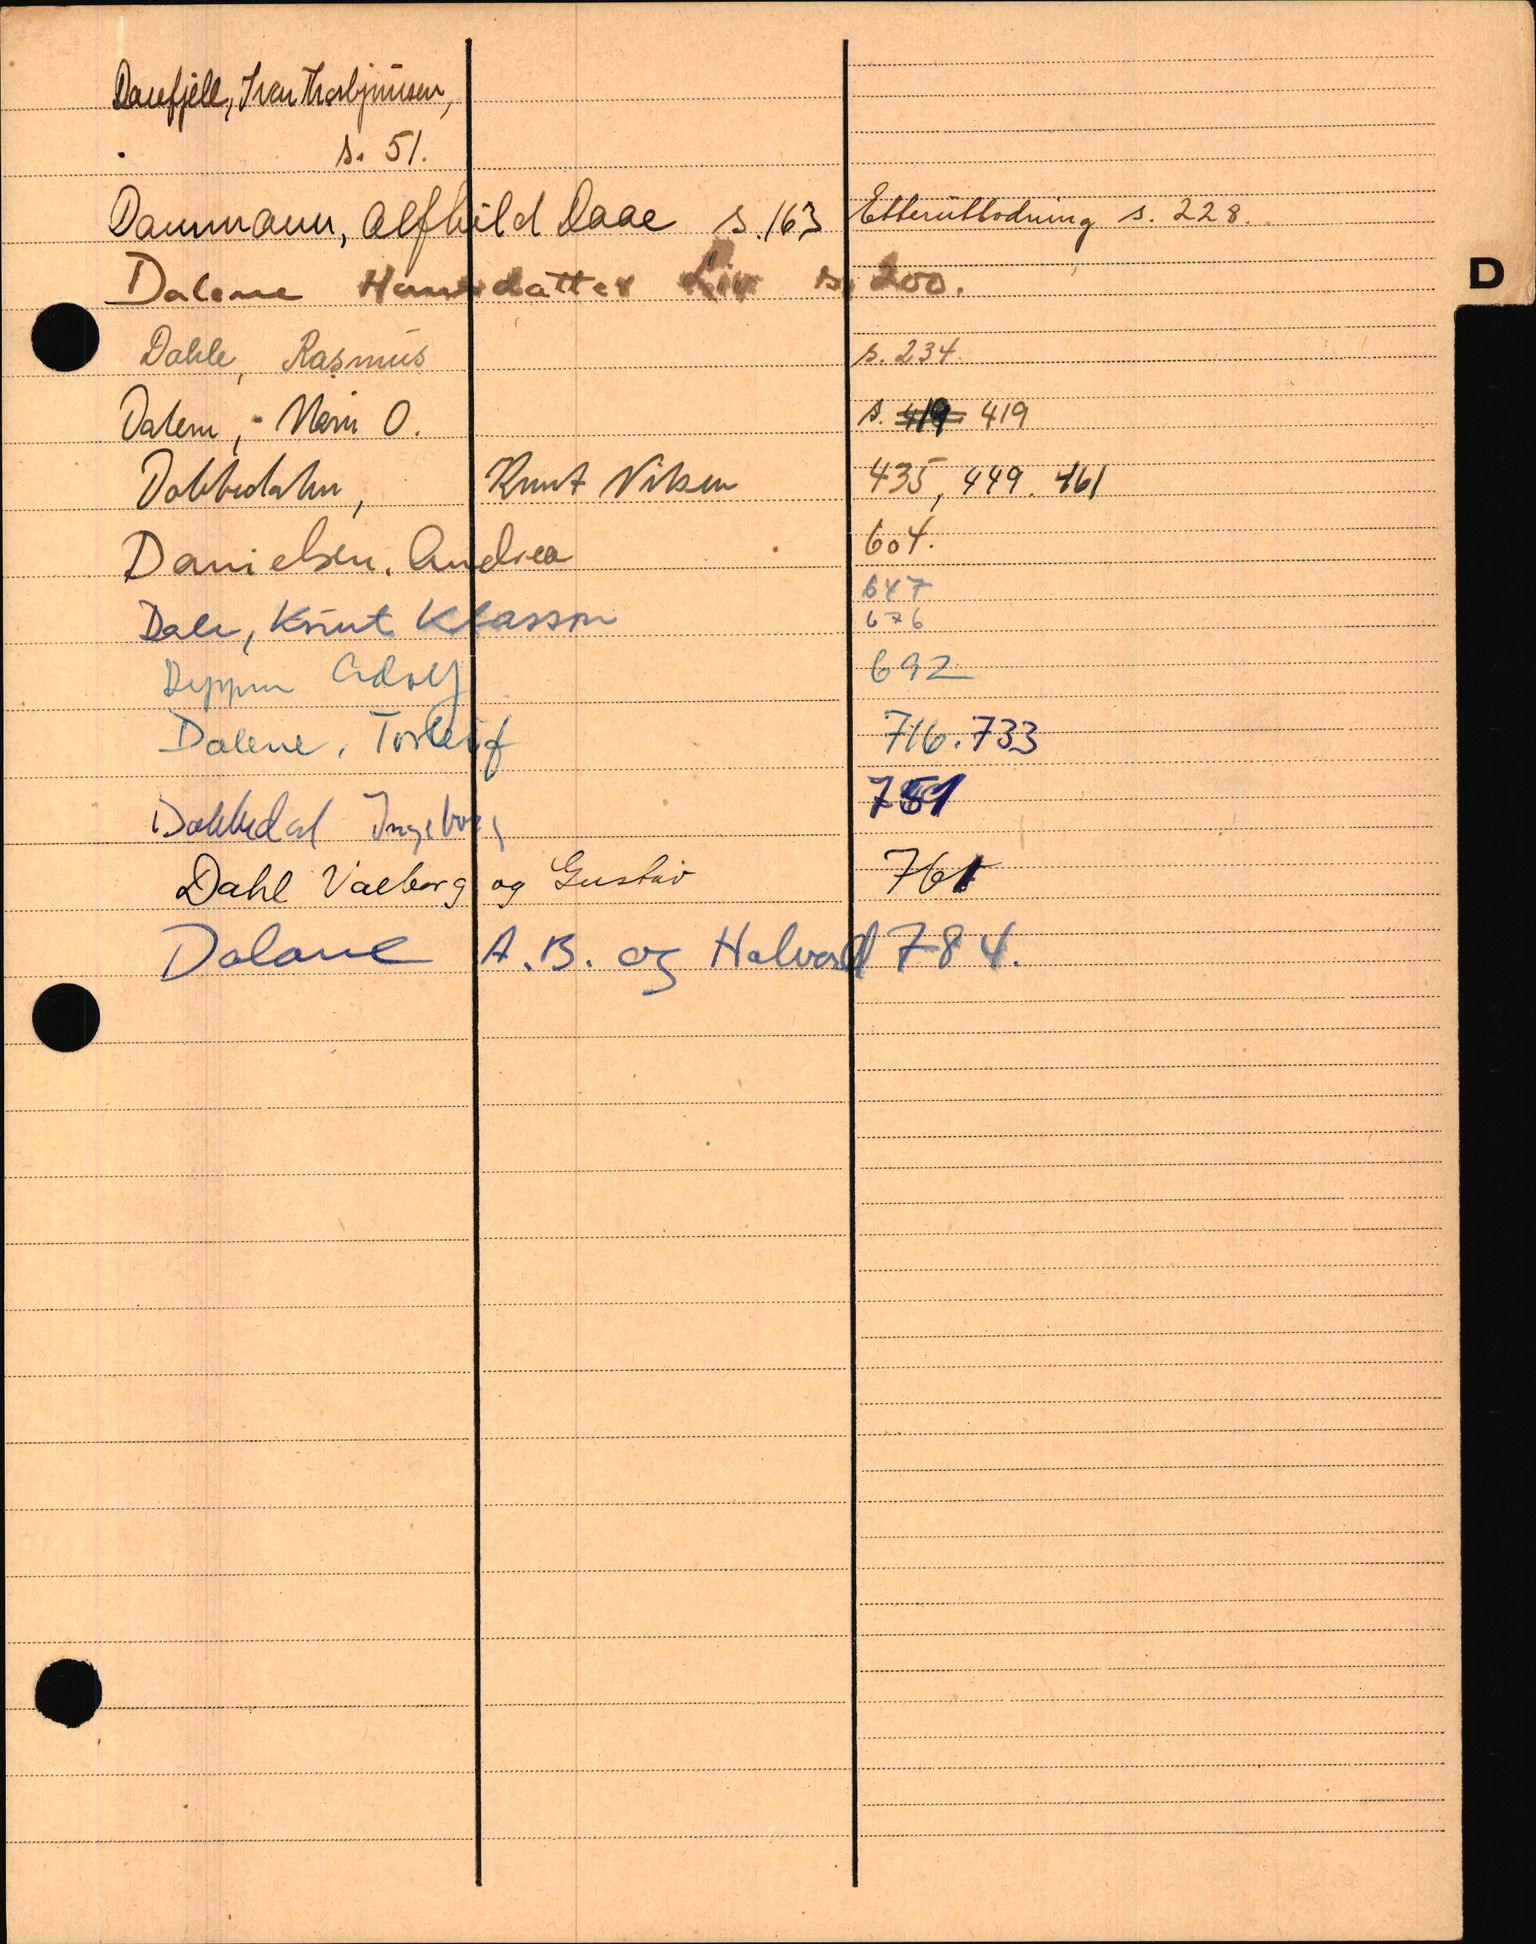 Dauefjell, Ivar Thorbjørnsen,
s. 51.
Danmann, Alfhild Daae s. 163 Etterutlodning s. 228.
D
Dalene Hansdatter Liv s. 200.
Dahle, Rasmus s. 234.
Dalem, O. s. 419 419
Dobbedalen, Knut Nilsen 435, 449. 461
Danielsen. Andrea 604.
647
Dale, Knut Klasson 676
Deppen Adolf 692
Dalene, Torleif 716. 733
Dobbedal Ingeborg 751
Dahl Valborg og Gustav 761
Dalane A.B. og Halvard 784.